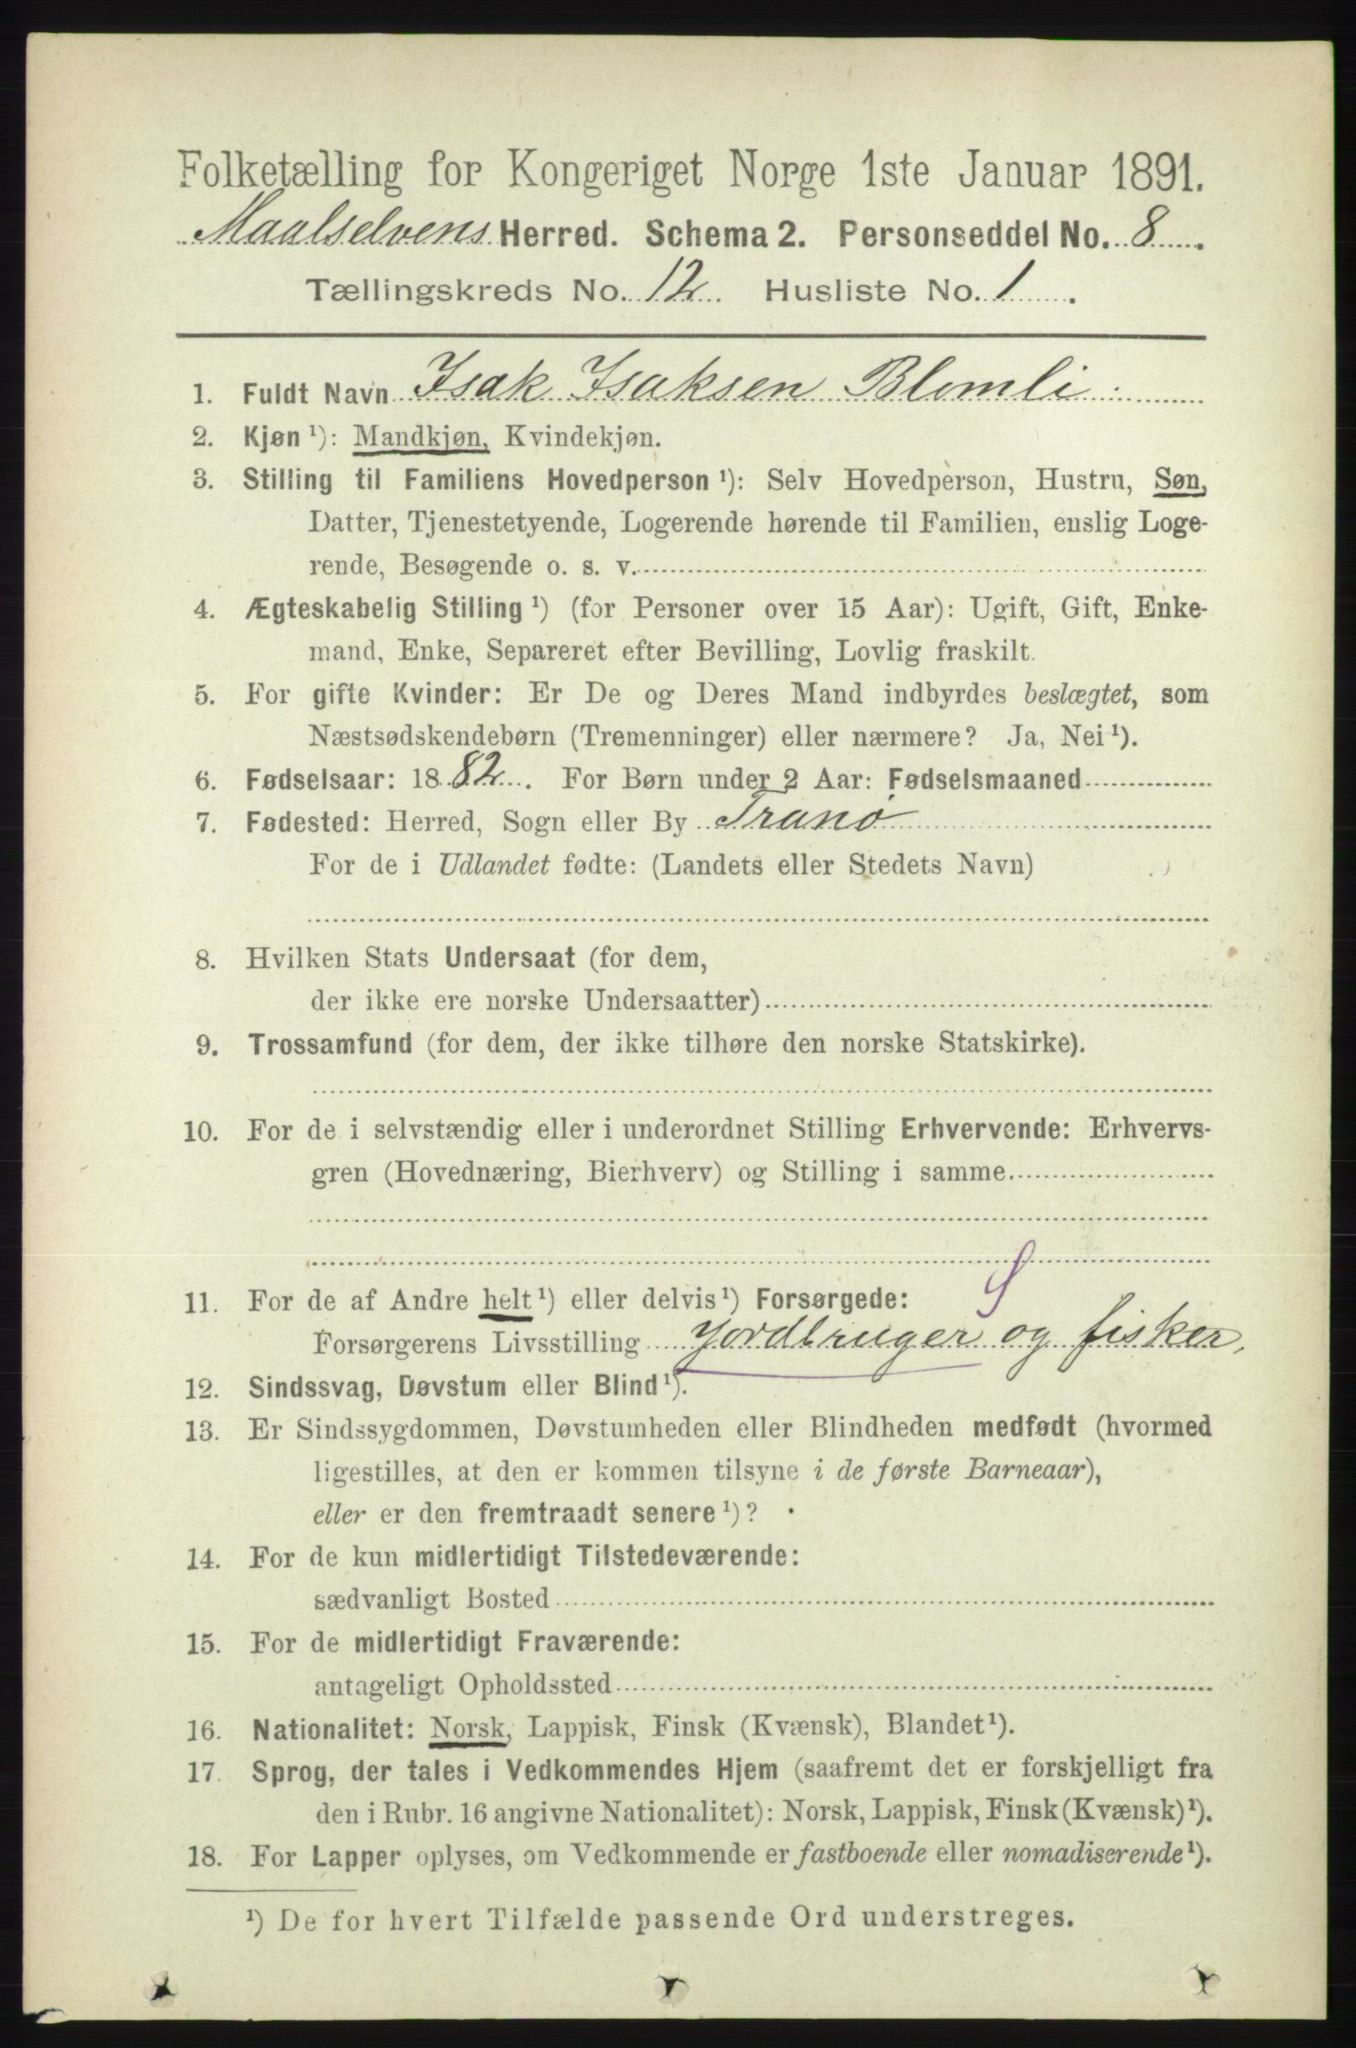 Folketælling for Kongeriget Norge 1ste Januar 1891.
Maalselvens Herred. Schema 2. Personseddel No. 8
Tællingskreds No. 12 Husliste No. 1
1. Fuldt Navn Isak Isaksen Blomli
2. Kjøn ¹): Mandkjøn, Kvindekjøn.
3. Stilling til Familiens Hovedperson ¹): Selv Hovedperson, Hustru, Søn,
Datter, Tjenestetyende, Logerende hørende til Familien, enslig Loge-
rende, Besøgende o. s. v.
4. Ægteskabelig Stilling ¹) (for Personer over 15 Aar): Ugift, Gift, Enke-
mand, Enke, Separeret efter Bevilling, Lovlig fraskilt.
5. For gifte Kvinder: Er De og Deres Mand indbyrdes beslægtet, som
Næstsødskendebørn (Tremenninger) eller nærmere? Ja, Nei ¹).
6. Fødselsaar: 1882. For Børn under 2 Aar: Fødselsmaaned
7. Fødested: Herred, Sogn eller By Tranø
For de i Udlandet fødte: (Landets eller Stedets Navn)
8. Hvilken Stats Undersaat (for dem,
der ikke ere norske Undersaatter)
9. Trossamfund (for dem, der ikke tilhøre den norske Statskirke).
10. For de i selvstændig eller i underordnet Stilling Erhvervende: Erhvervs-
gren (Hovednæring, Bierhverv) og Stilling i samme
11. For de af Andre helt ¹) eller delvis ¹) Forsørgede: S
Forsørgerens Livsstilling Jordbruger og fisker,
12. Sindssvag, Døvstum eller Blind ¹).
13. Er Sindssygdommen, Døvstumheden eller Blindheden medfødt (hvormed
ligestilles, at den er kommen tilsyne i de første Barneaar),
eller er den fremtraadt senere ¹)?
14. For de kun midlertidigt Tilstedeværende:
sædvanligt Bosted
15. For de midlertidigt Fraværende:
antageligt Opholdssted
16. Nationalitet: Norsk, Lappisk, Finsk (Kvænsk), Blandet ¹).
17. Sprog, der tales i Vedkommendes Hjem (saafremt det er forskjelligt fra
den i Rubr. 16 angivne Nationalitet): Norsk, Lappisk, Finsk (Kvænsk) ¹).
18. For Lapper oplyses, om Vedkommende er fastboende eller nomadiserende ¹).
¹) De for hvert Tilfælde passende Ord understreges.